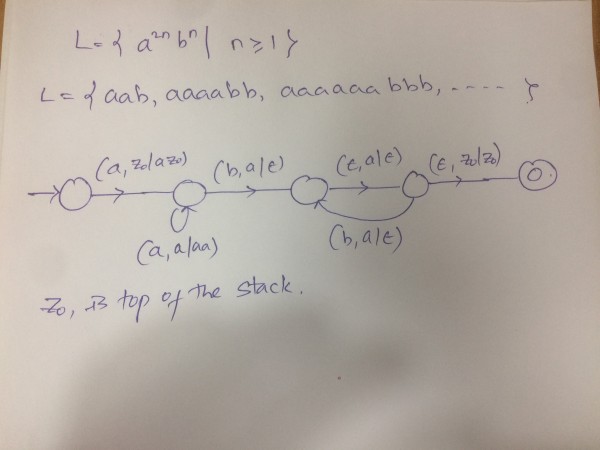 L = { a²ⁿ bⁿ | n ≥ 1 }
L = { aab, aaaabb, aaaaaa bbb, ---- }
(a, z₀/az₀) (b, a/ε) (ε, a/ε) (ε, z₀/z₀)
(a, a/aa) (b, a/ε)
Z₀, is top of the stack.